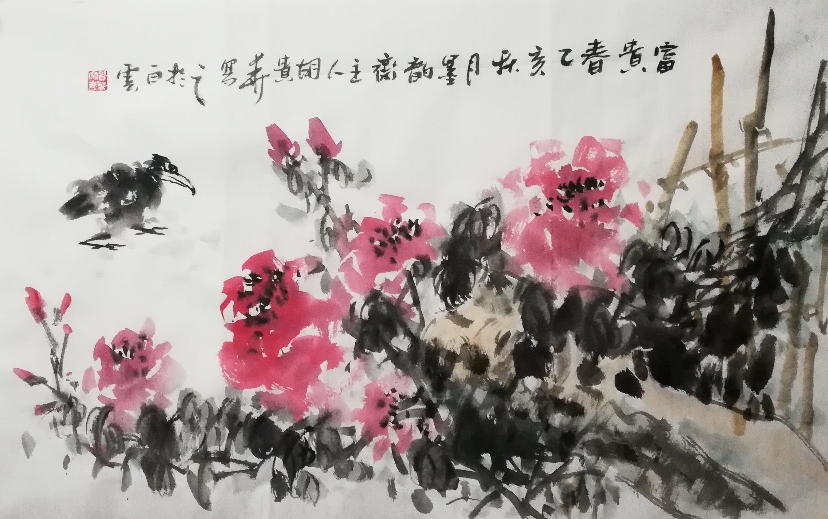 富贵春乙亥秋月墨韵斋主人胡贵葬写之于白云